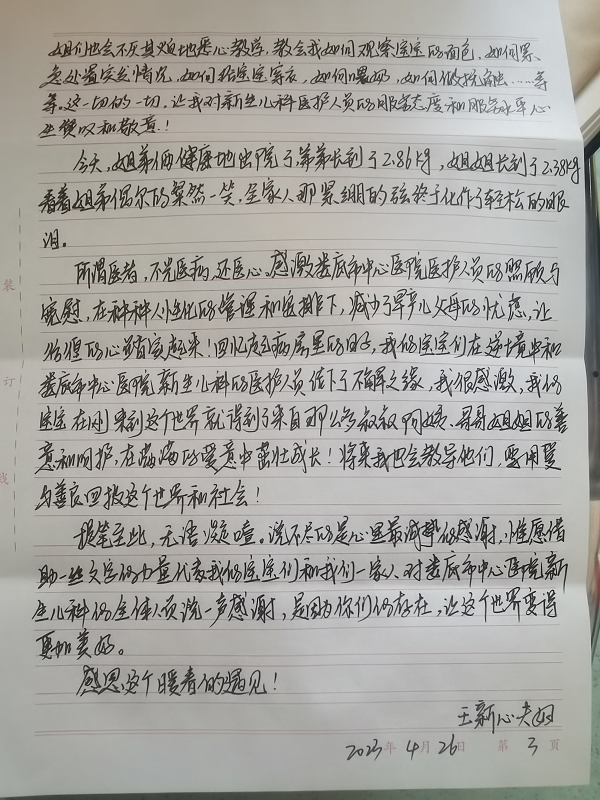 姐们也会不厌其烦地悉心教学，教会我如何观察宝宝的面色、如何紧
急处置突发情况，如何给宝宝穿衣，如何喂奶，如何做抚触……等
等。这一切的一切，让我对新生儿科医护人员的服务态度和服务水平心
生赞叹和敬意！
今天，姐弟俩健康地出院了，弟弟长到了2.86kg，姐姐长到了2.38kg
看着姐弟偶尔的粲然一笑，全家人那紧绷的弦终于化作了轻松的眼
泪。
所谓医者，不光医病，还医心。感激娄底市中心医院医护人员的照顾与
宽慰，在种种人性化的管理和安排下，减少了早产儿父母的忧虑，让
的心有
回忆起病房里的日子，我的宝宝们在这里和
娄底市中心医院新生儿科的医护人员结下了不解之缘，我很感激，我的
宝宝在刚来到这个世界就得到了来自那么多叔叔阿姨、哥哥姐姐的善
意和呵护，在满满的爱意中茁壮成长！将来我也会教导他们，要用爱
与善良回报这个世界和社会！
提笔至此，无语凝噎。说不尽的是心里最诚挚的感谢，惟愿借
助一些文字的力量代表我的宝宝们和我们一家人对娄底市中心医院新
生儿科的全体人员说一声感谢，是因为你们的存在，让这个世界变得
更加美好。
感恩这个暖春的遇见！
王新心夫妇
2023年4月26日 第3页
装
订
线